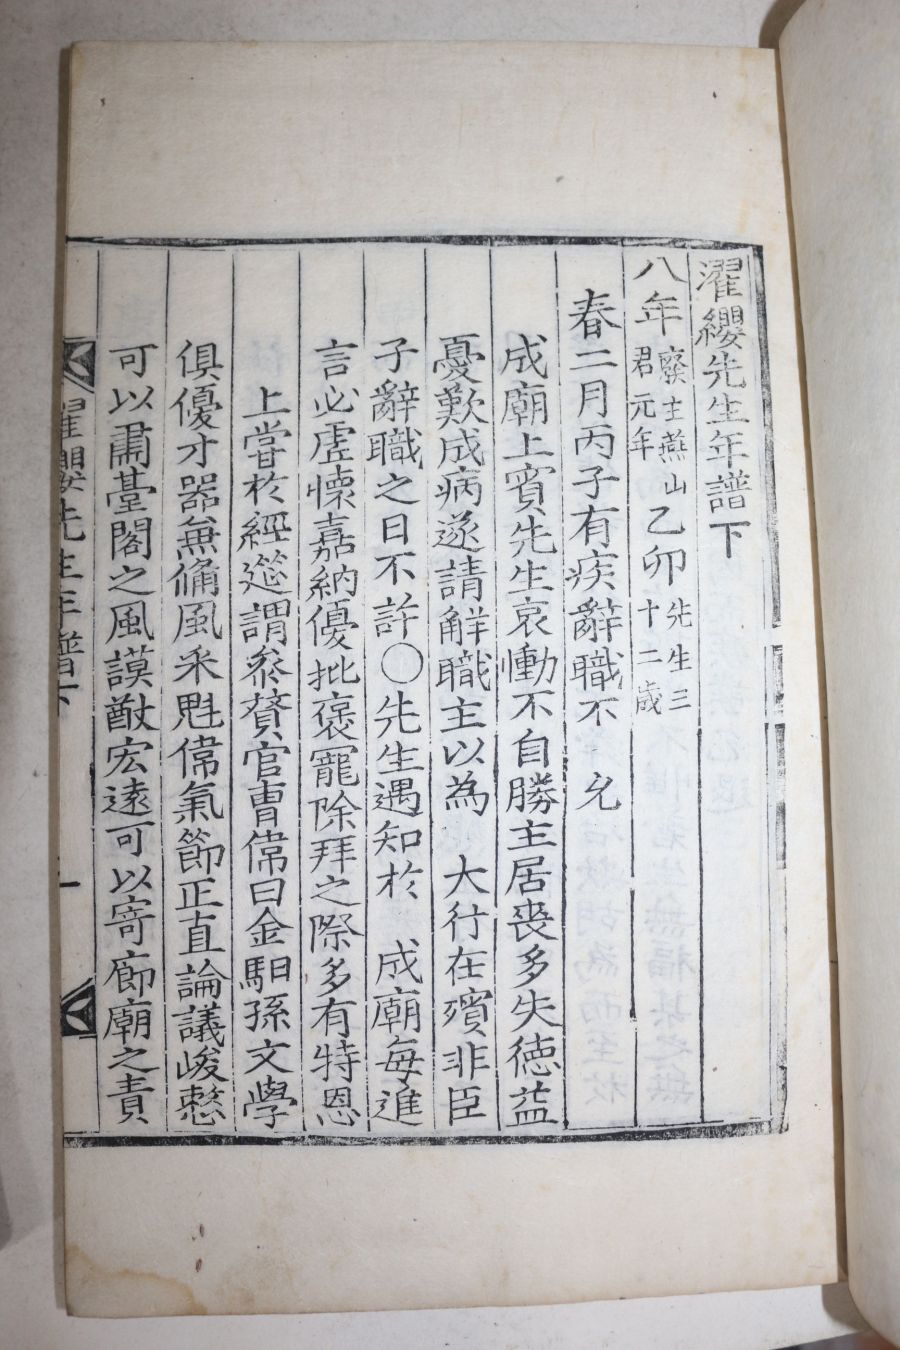 濯纓先生年譜下
八年廢主燕山君元年乙卯先生三十二歲
春二月丙子有疾辭職不允
成廟上賓先生哀慟不自勝主居喪多失德益
憂歎成病遂請解職主以為 大行在殯非臣
子辭職之日不許〇先生遇知於 成廟每進
言必虛懷嘉納優批褒寵除拜之際多有特恩
上嘗於經筵謂叅贊官曺偉曰金馹孫文學
俱優才器無俻風采魁偉氣節正直論議峻整
可以肅臺閣之風謨猷宏遠可以寄廊廟之責
濯纓先生年譜下 一